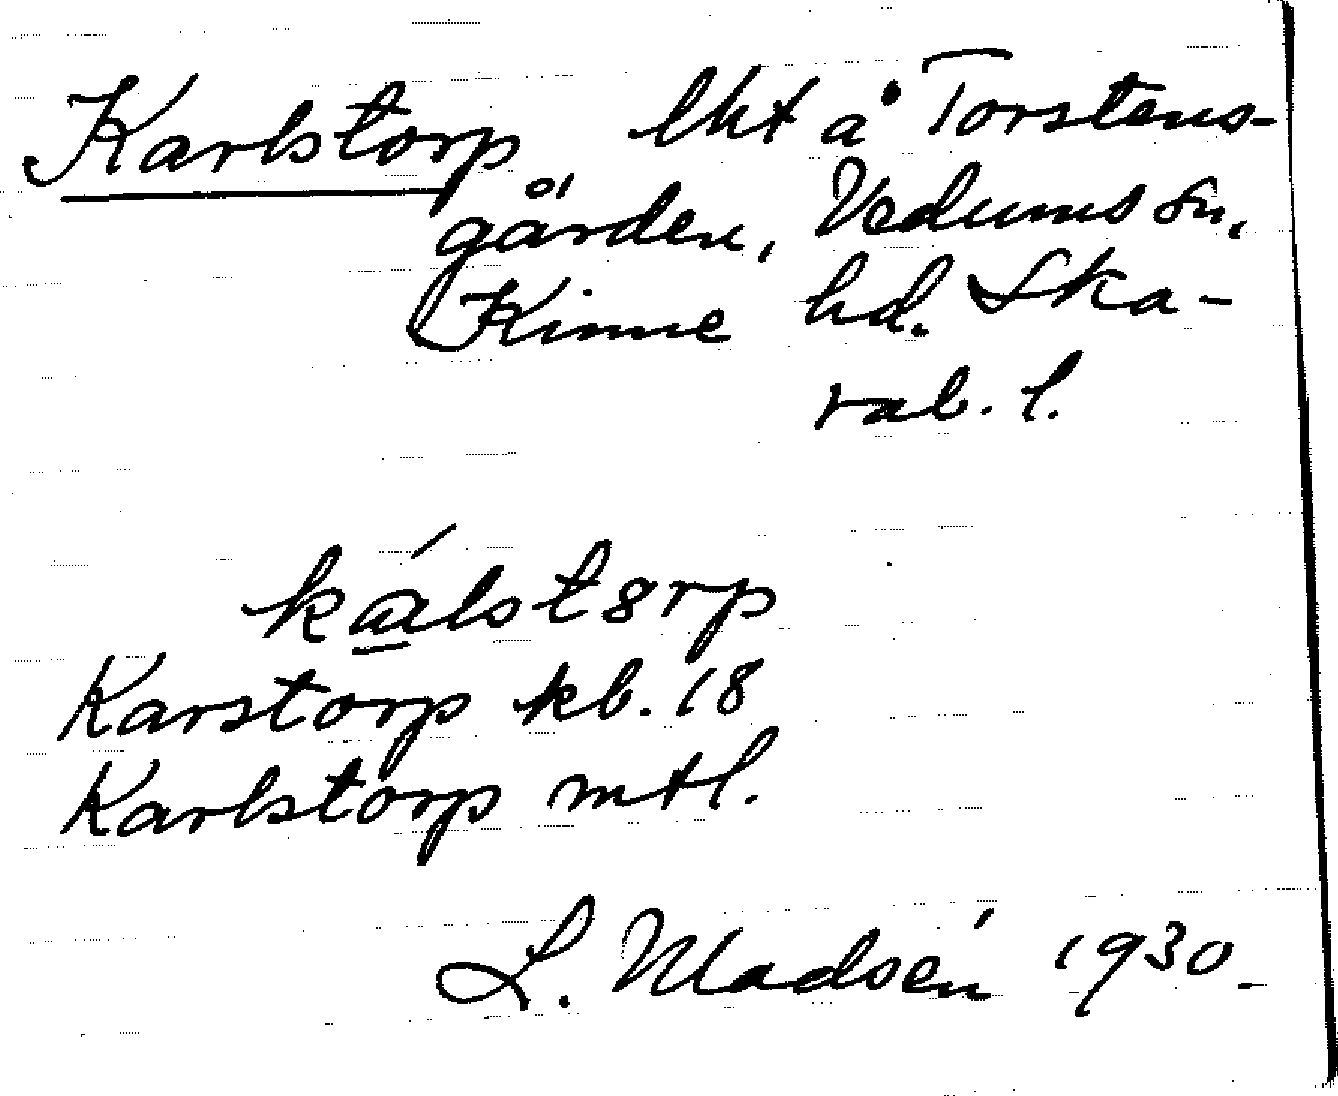 Karlstorp lht å Torstens-
gården, Vedums sn,
Kinne hd. Ska-
rab. l.
ká̲lstɜrp
Karstorp kb. 18
Karlstorp mtl.
L. Madsén 1930.